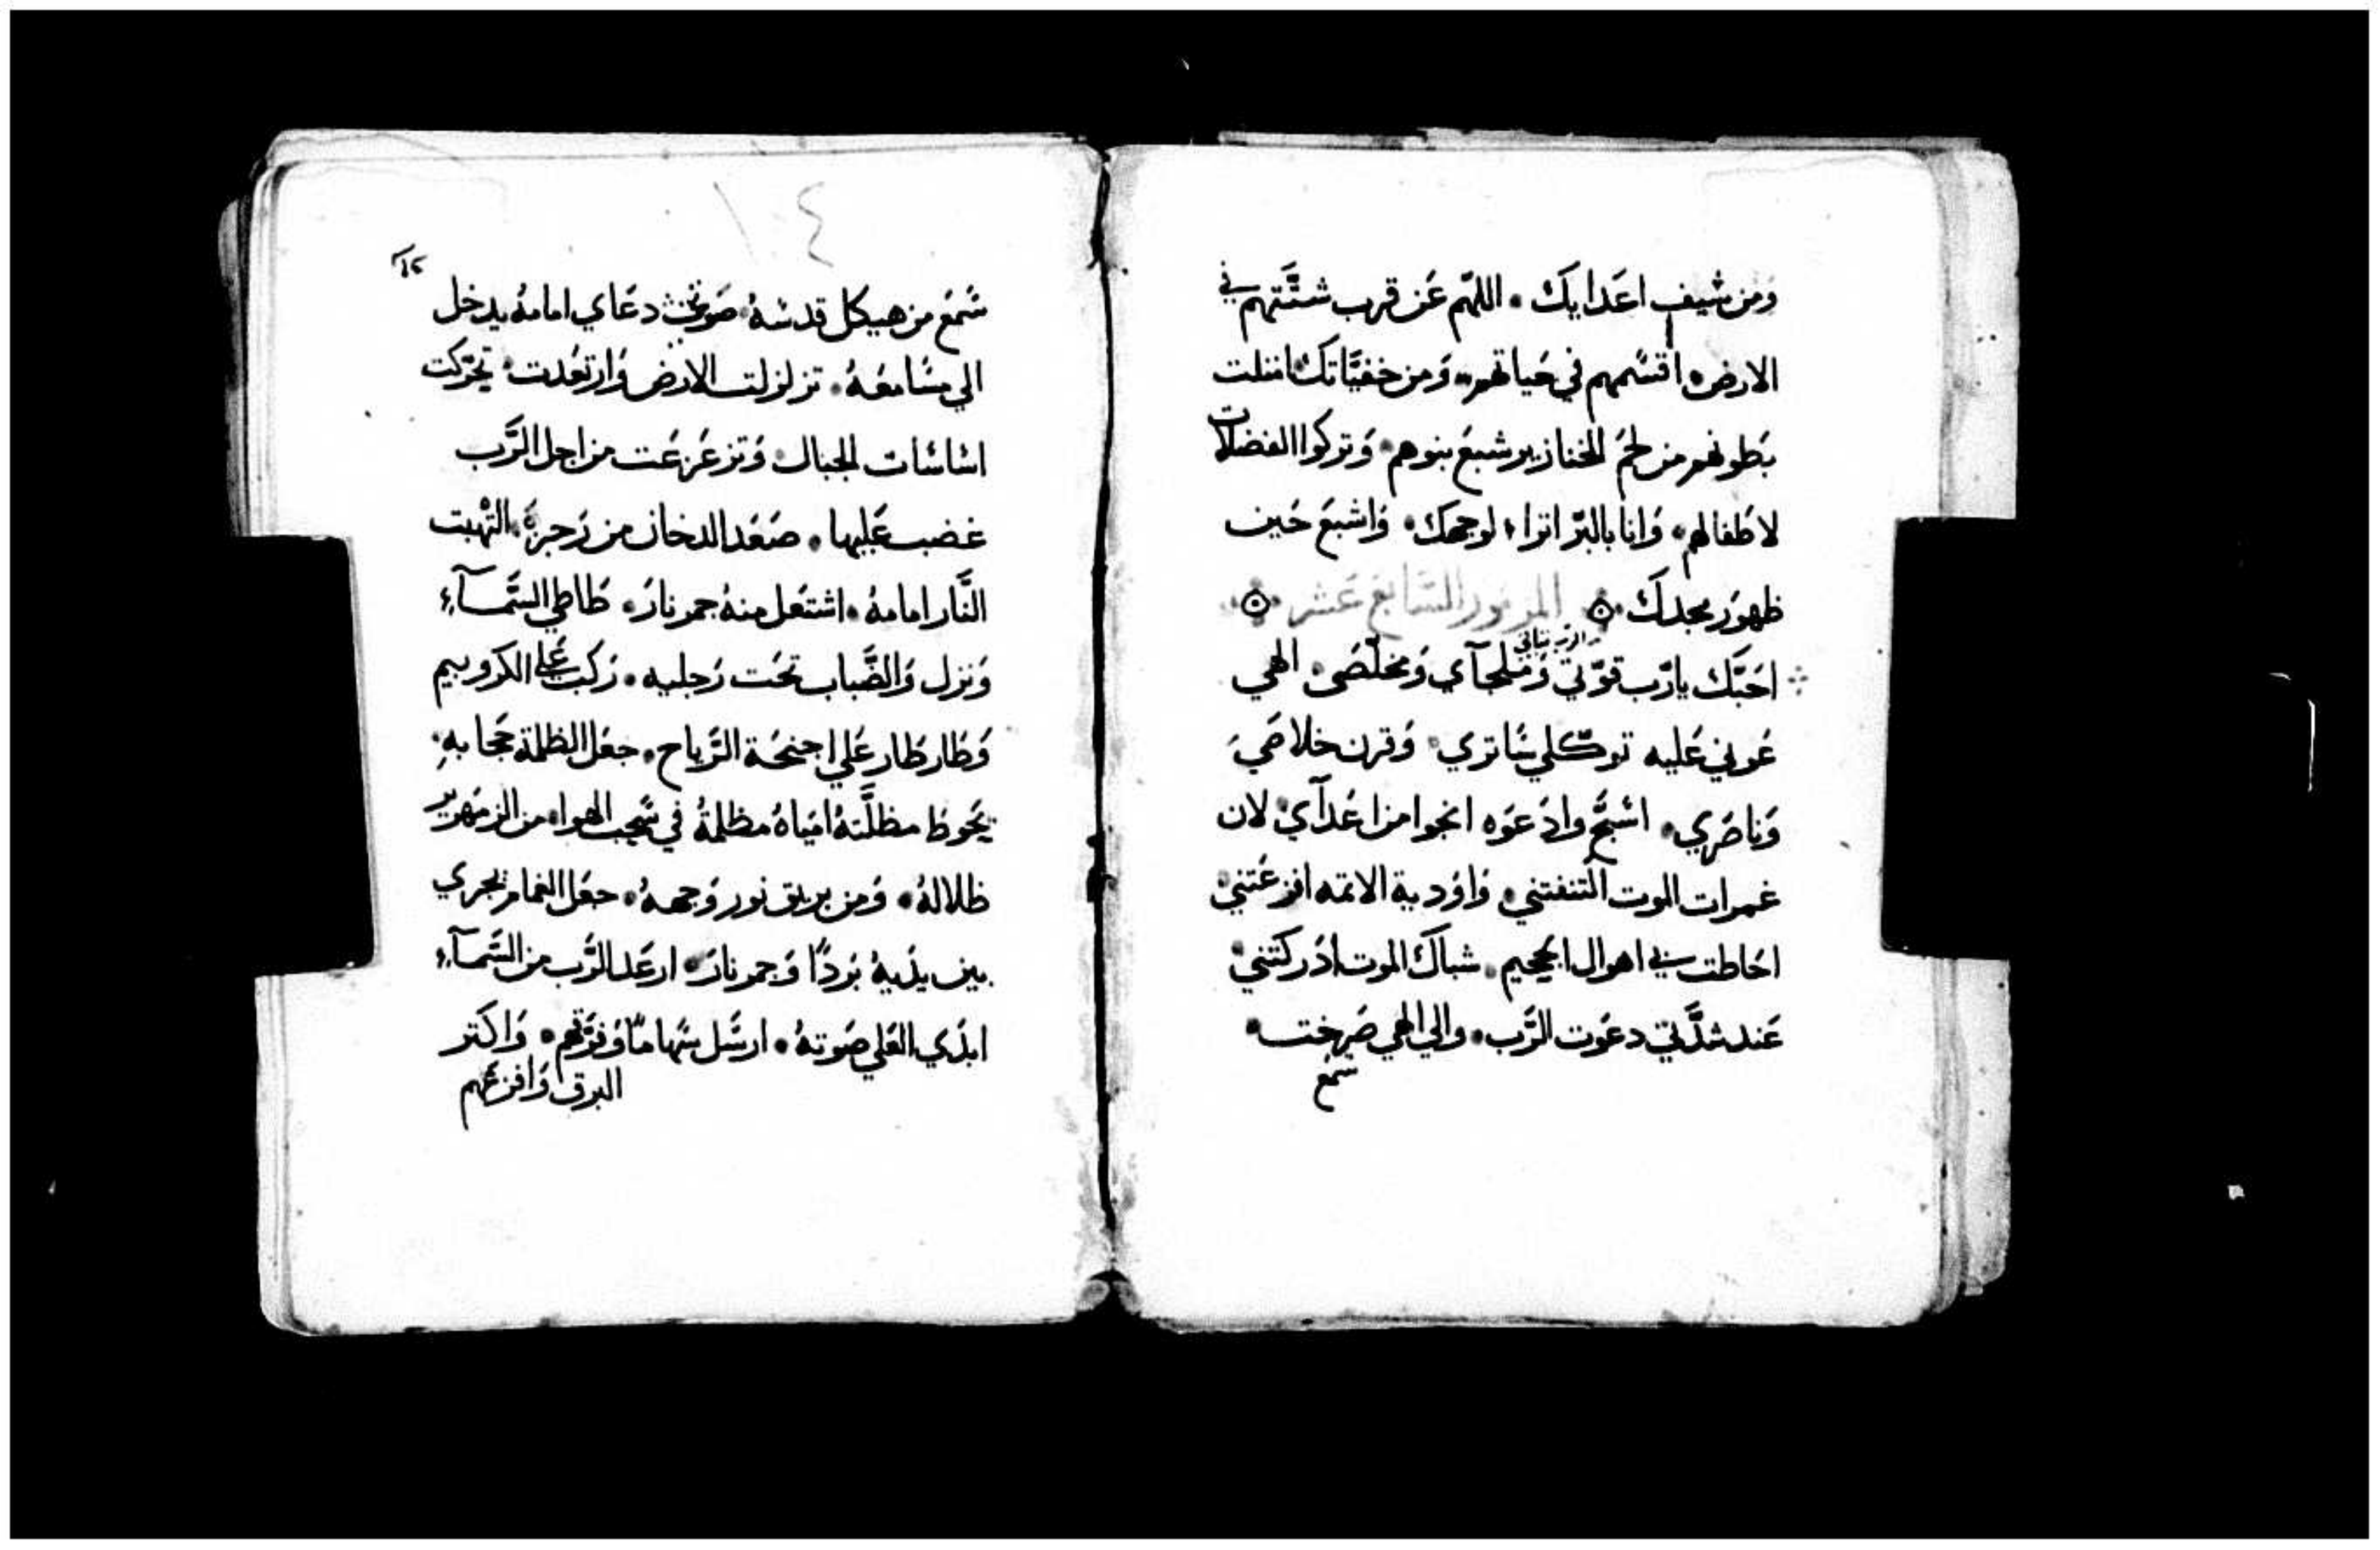 ومن سيف اعدايك • اللهم عن قرب شتتهم في
الارض • اقسمهم في حياتهم • ومن خفياتك امتلت
بطونهم من لحم الخنازير شبع بنوهم • وتركوا الفضلات
لاطفالهم • وانا بالبر اتراا لوجهك • واشبع حين
ظهور مجدك • المزمور السابع عشر
احبك يارب قوتي وملجآي ومخلصى • الهي
عوني عليه توكلي ساتري • وقرن خلاصي
وناصري • اسبح وادعوه انجوا من اعدآي • لان
غمرات الموت التنفتني • واودية الاتمه افزعتني •
احاطت بي اهوال الجحيم • شباك الموت ادركتني •
عند شدتي دعوت الرب • والي الهي صرخت •
سمع
١٤
سمع من هيكل قدسه • صوتي دعاي امامه يدخل
الي مسامعه • تزلزلت الارض وارتعدت • تحركت
اساسات الجبال • وتزعزعت من اجل الرب
غضب عليها • صعد الدخان من زجره • التهبت
النار امامه • اشتعل منه جمر نار • طاطي السمآء
ونزل والضباب تحت رجليه • ركب علي الكروبيم
وطار طار علي اجنحة الرياح • جعل الظلمة حجابه •
يحوط مظلته امياه مظلمة في سحب الهوا • من الزمهرير
ظلاله • ومن بريق نور وجهه • جعل الغمام يجري
بين يديه بردا وجمر نار • ارعد الرب من السمآء
ابدي العلي صوته • ارسل سهاما وفرقهم • واكتر
البرق وافزعهم